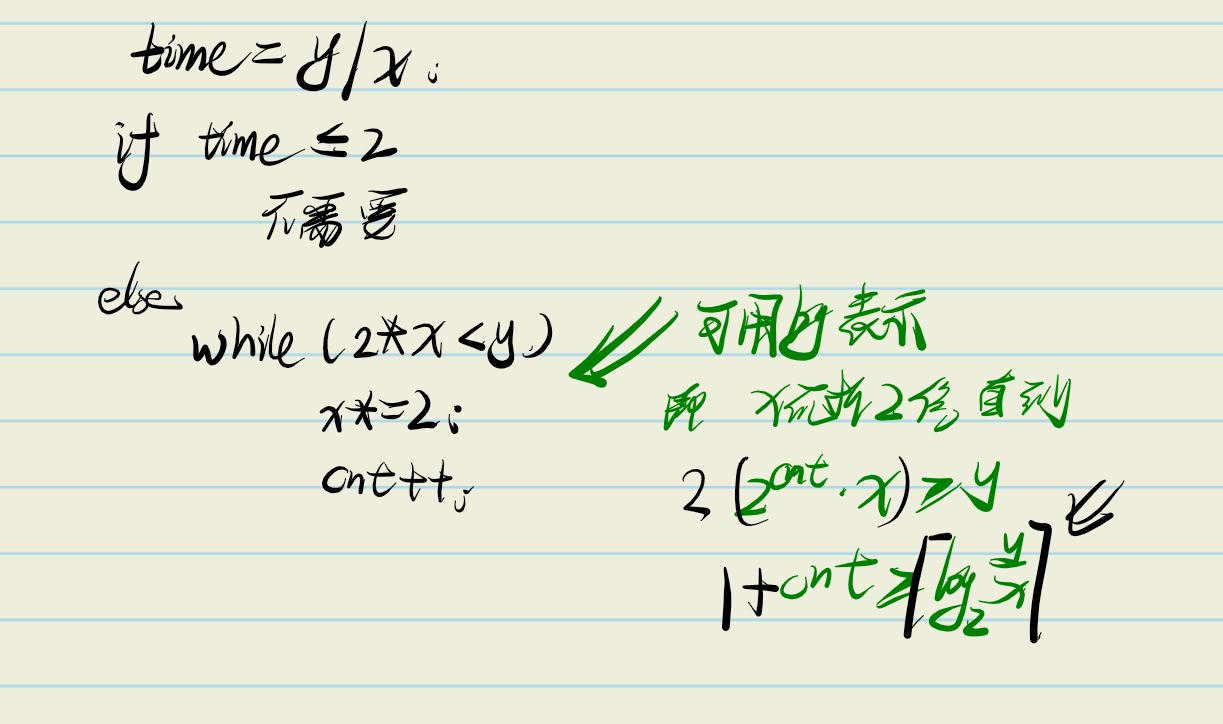 time = y/x;
if time ≤ 2
不需要
else
while (2*x < y)
x*=2;
cnt++;
可用log表示
即 x流状2倍,直到
2 (2^cnt · x) ≥ y
1+cnt ≥ ⌈log₂ y/x⌉